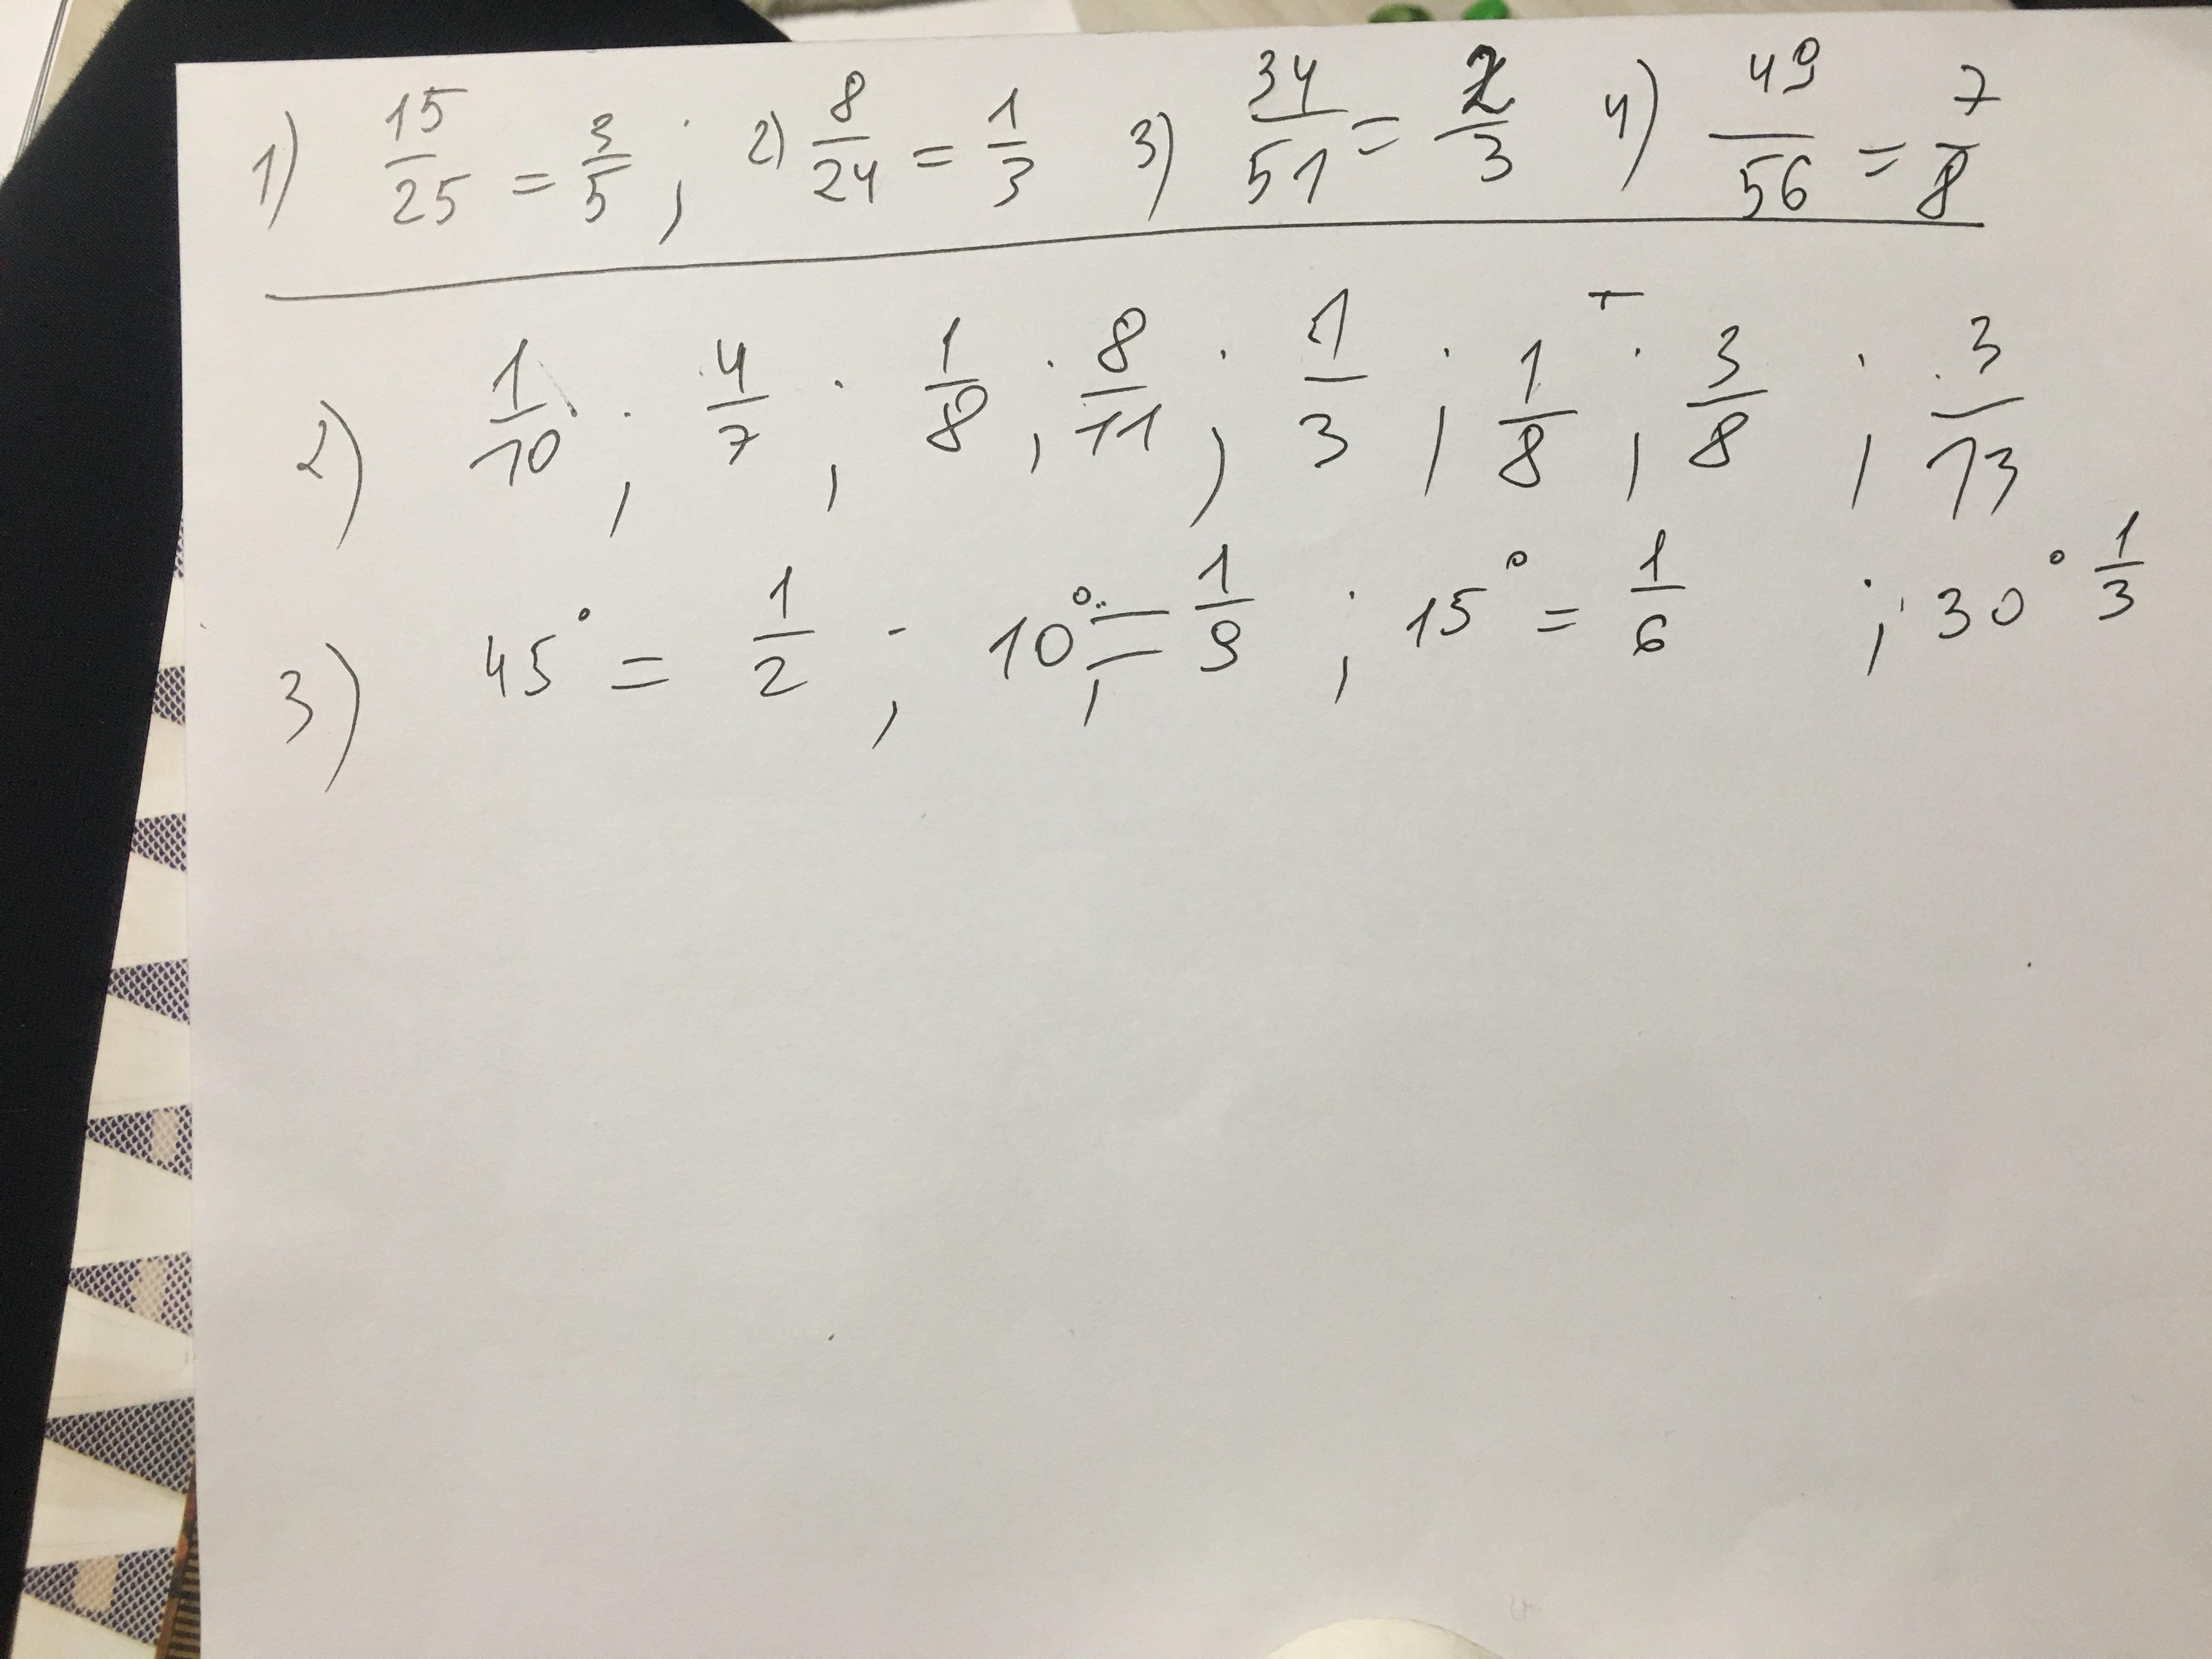 1) 15/25 = 3/5 ; 2) 8/24 = 1/3 3) 34/51 = 2/3 4) 49/56 = 7/8
2) 1/10 ; 4/7 ; 1/8 ; 8/11 ; 1/3 ; 1/8 ; 3/8 ; 3/13
3) 45° = 1/2 ; 10° = 1/9 ; 15° = 1/6 ; 30° 1/3